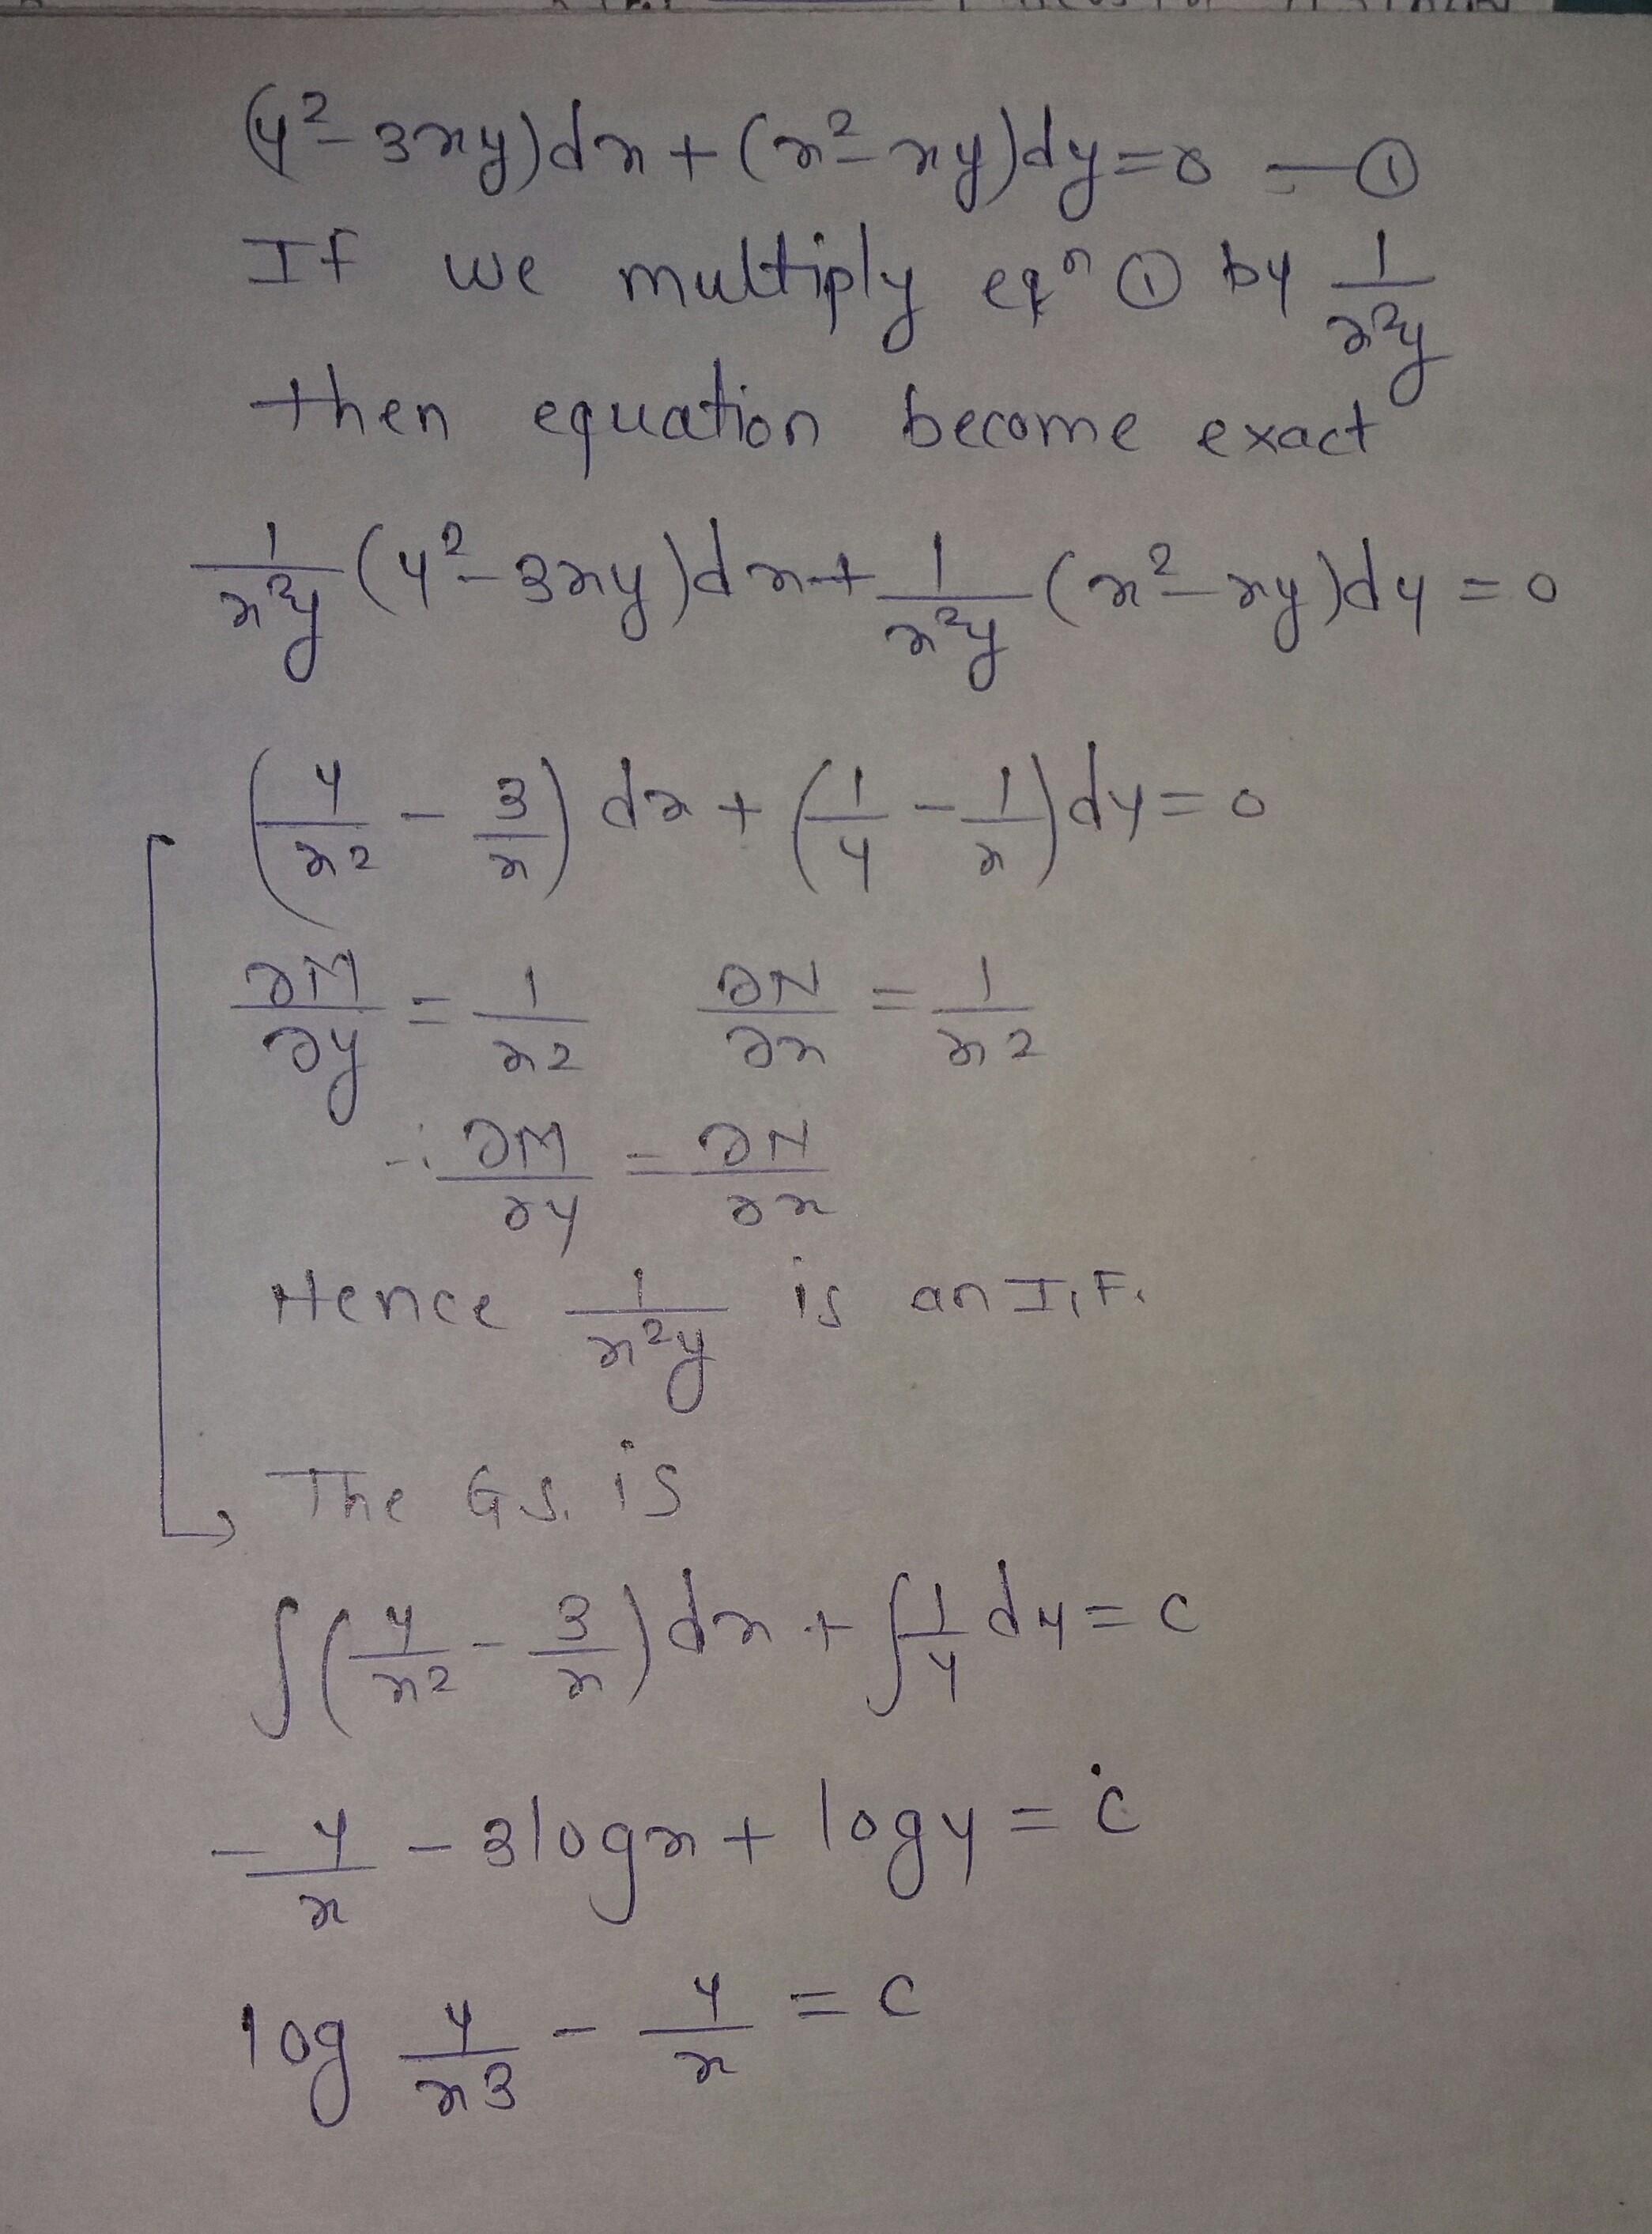 (y²-3xy)dx+(x²-xy)dy=0 —①
If we multiply eqⁿ ① by 1/x²y
then equation become exact
1/x²y (y²-3xy)dx+1/x²y (x²-xy)dy=0
(y/x² - 3/x) dx + (1/y - 1/x)dy=0
∂M/∂y = 1/x² ∂N/∂x = 1/x²
∴ ∂M/∂y = ∂N/∂x
Hence 1/x²y is an I.F.
The G.S. is
∫(y/x² - 3/x)dx + ∫1/y dy = c
-y/x - 3logx + logy = c
log y/x3 - y/x = c